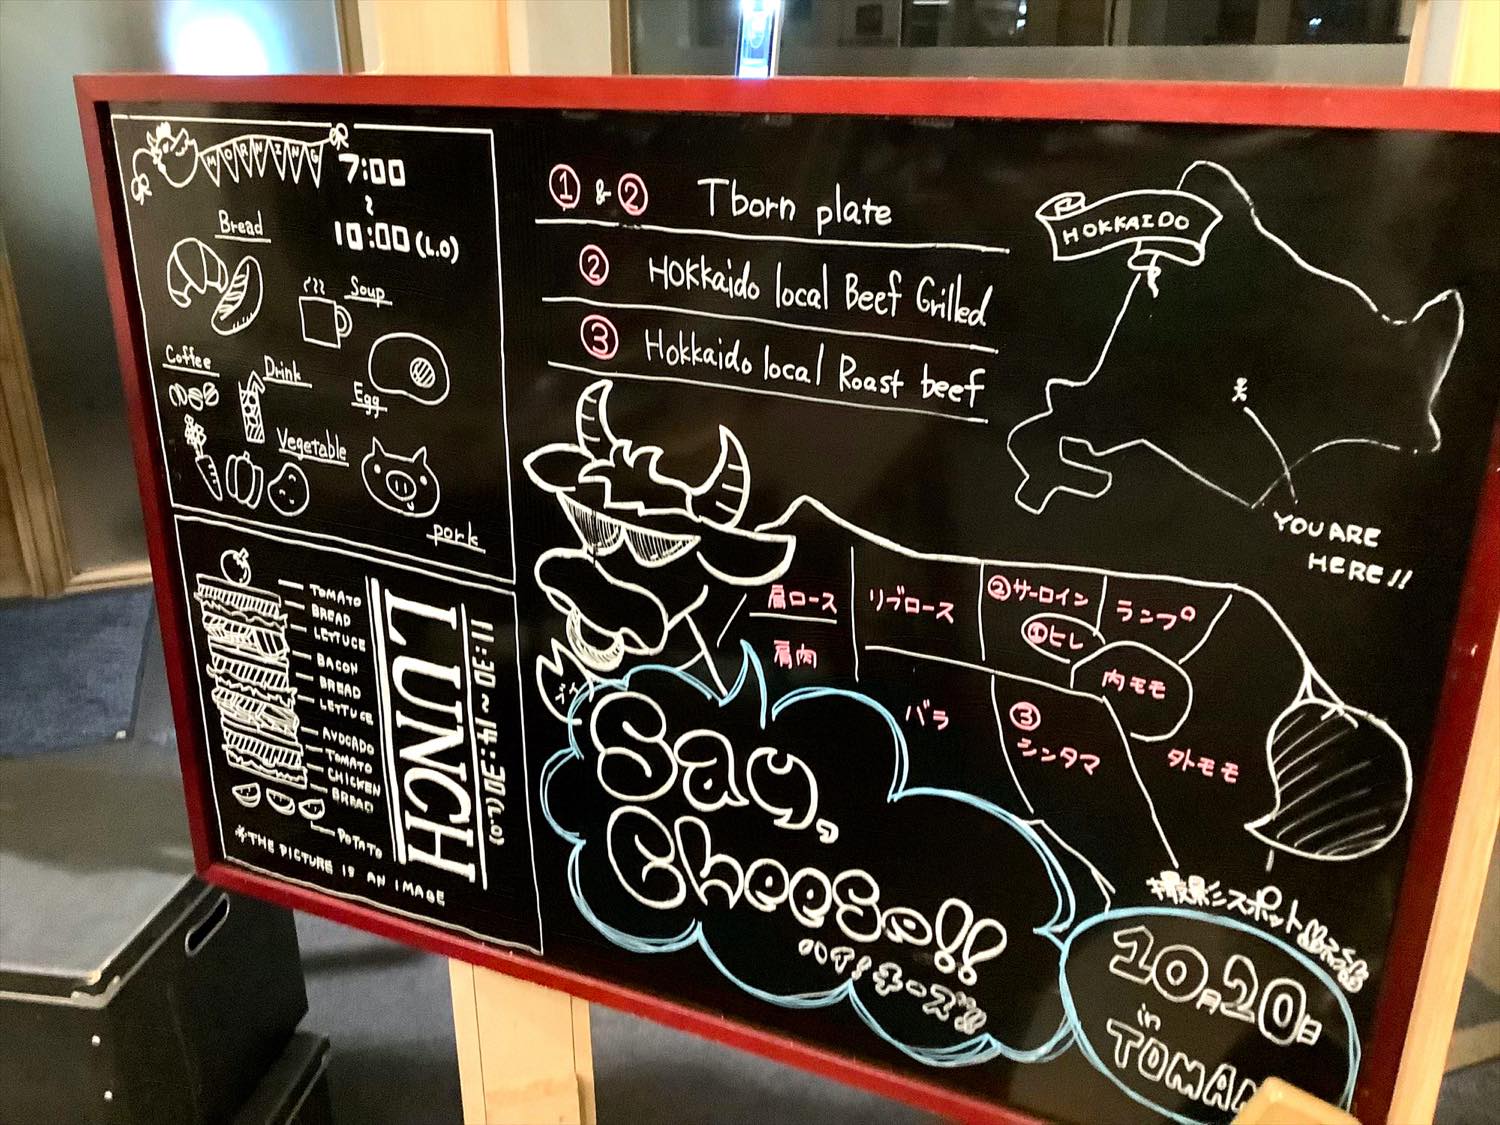 MORNING
7:00
~
10:00 (L.O)
Bread
Soup
Coffee
Drink
Egg
Vegetable
pork
TOMATO
BREAD
LETTUCE
BACON
BREAD
LETTUCE
AVOCADO
TOMATO
CHICKEN
BREAD
POTATO
※THE PICTURE IS AN IMAGE
LUNCH
11:30~14:30(L.O)
① & ② Tborn plate
② HOKKaido local Beef Grilled
③ Hokkaido local Roast beef
HOKKAIDO
YOU ARE
HERE!!
肩ロース
肩肉
リブロース
②サーロイン
①ヒレ
ランプ
内モモ
バラ
③
シンタマ
外モモ
Say,
Cheese!!
ハイ!チーズ!!
10月20日
in